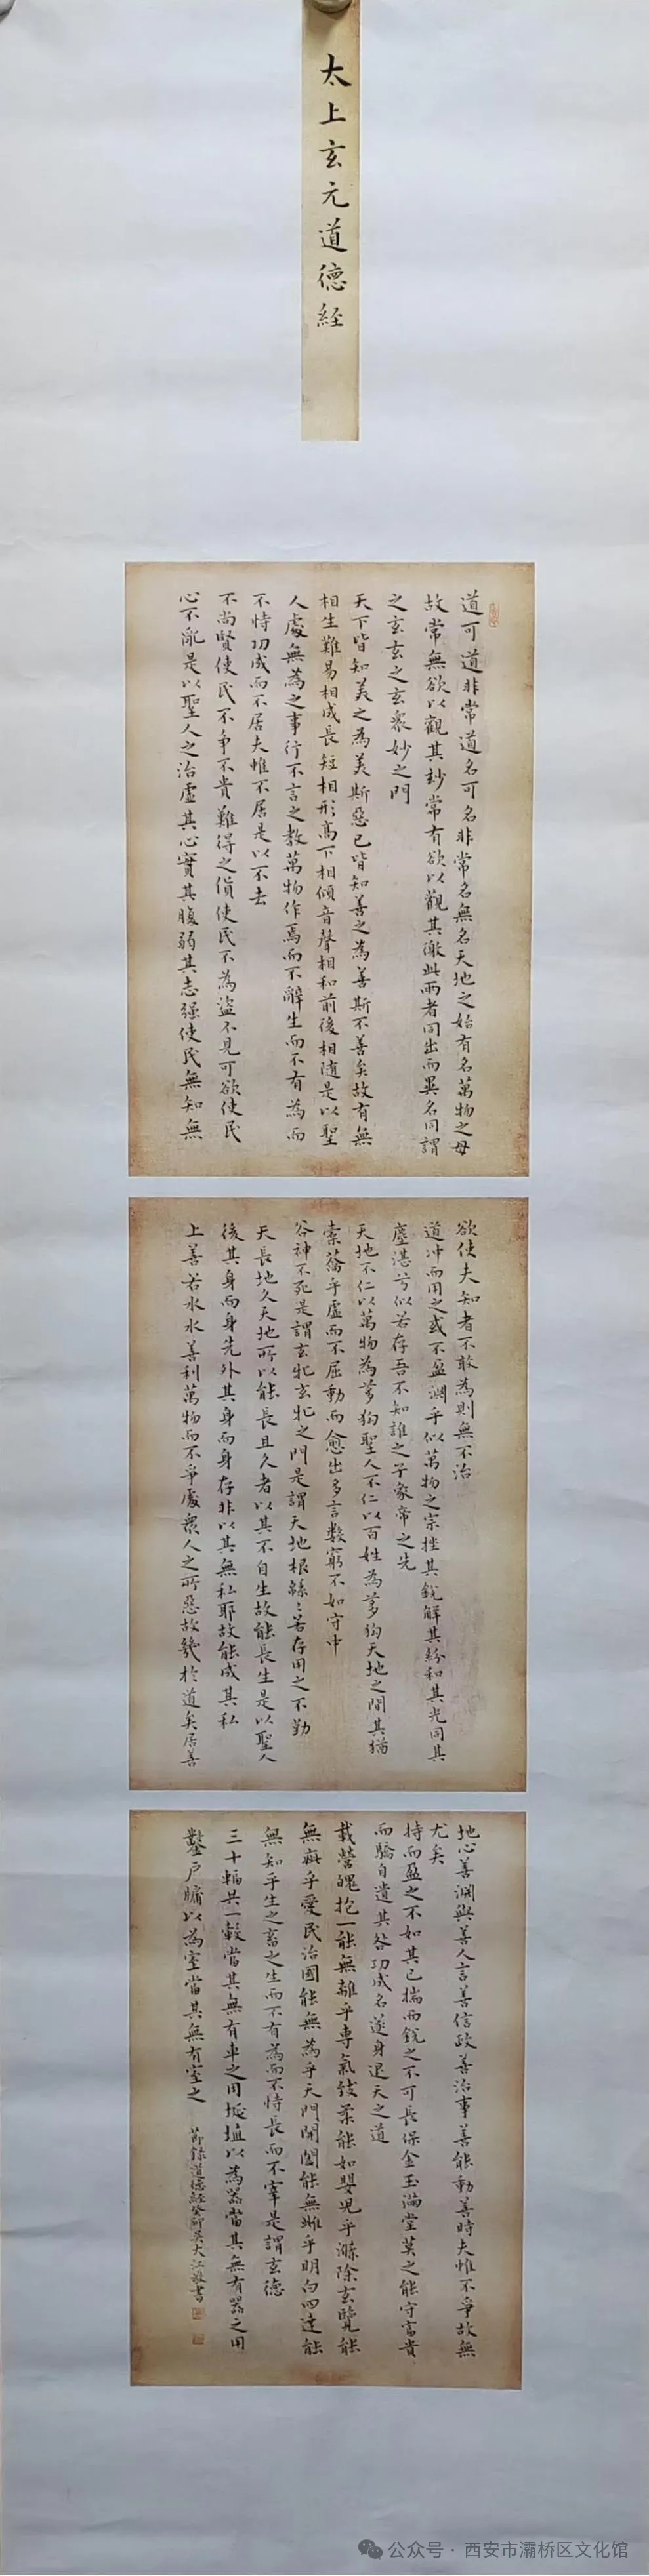 太上玄元道德經
道可道非常道名可名非常名無名天地之始有名萬物之母
故常無欲以觀其妙常有欲以觀其徼此兩者同出而異名同謂
之玄玄之玄衆妙之門
天下皆知美之為美斯惡已皆知善之為善斯不善矣故有無
相生難易相成長短相形高下相傾音聲相和前後相隨是以聖
人處無為之事行不言之教萬物作焉而不辭生而不有為而
不恃功成而不居夫惟不居是以不去
不尚賢使民不争不貴難得之貨使民不為盜不見可欲使民
心不亂是以聖人之治虛其心實其腹弱其志强使民無知無
欲使夫知者不敢為則無不治
道冲而用之或不盈淵乎似萬物之宗挫其銳解其紛和其光同其
塵湛兮似若存吾不知誰之子象帝之先
天地不仁以萬物為芻狗聖人不仁以百姓為芻狗天地之間其猶
橐籥乎虛而不屈動而愈出多言數窮不如守中
谷神不死是謂玄牝玄牝之門是謂天地根綿々若存用之不勤
天長地久天地所以能長且久者以其不自生故能長生是以聖人
後其身而身先外其身而身存非以其無私耶故能成其私
上善若水水善利萬物而不爭處衆人之所惡故幾於道矣居善
地心善淵與善人言善信政善治事善能動善時夫惟不爭故無
尤矣
持而盈之不如其已揣而銳之不可長保金玉滿堂莫之能守富貴
而驕自遺其咎功成名遂身退天之道
載營魄抱一能無離乎專氣致柔能如嬰兒乎滌除玄覽能
無疵乎愛民治國能無為乎天門開闔能無雌乎明白四達能
無知乎生之畜之生而不有為而不恃長而不宰是謂玄德
三十輻共一轂當其無有車之用埏埴以為器當其無有器之用
鑿戶牖以為室當其無有室之
節錄道德經癸卯吳大江敬書
公众号·西安市灞桥区文化馆